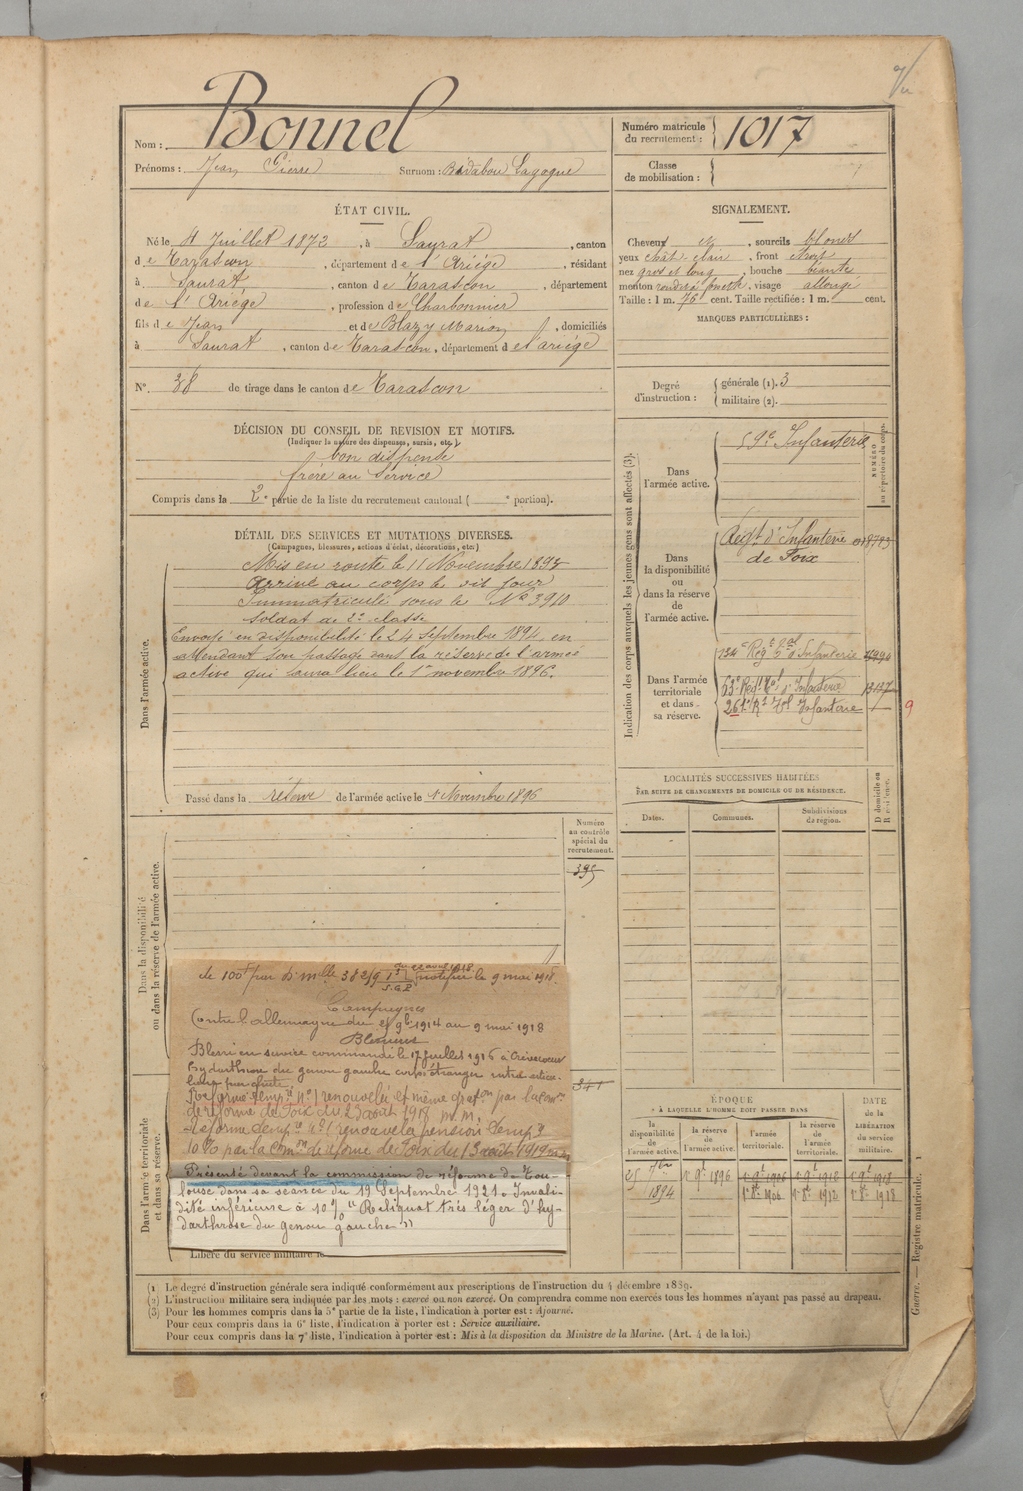 Nom : Bonnel
Numéro matricule du recrutement : 1017
Prénoms : Jean Pierre Surnom : Badabou Lagogue
Classe de mobilisation :
ÉTAT CIVIL.
Né le 4 Juillet 1872, à Saurat, canton
de Tarascon, département de l'Ariège, résidant
à Saurat, canton de Tarascon, département
de l'Ariège, profession de Charbonnier
fils de Jean et de Blazy Marion, domiciliés
à Saurat, canton de Tarascon, département de l'ariège
N° 38 de tirage dans le canton de Tarascon
DÉCISION DU CONSEIL DE REVISION ET MOTIFS.
(Indiquer la nature des dispenses, sursis, etc.)
bon dispensé
frère au Service
Compris dans la 2e partie de la liste du recrutement cantonal ( e portion).
DÉTAIL DES SERVICES ET MUTATIONS DIVERSES.
(Campagnes, blessures, actions d'éclat, décorations, etc.)
Dans l'armée active.
Mis en route le 11 Novembre
Arrivé au corps le dit jour
Immatriculé sous le No 3910
Soldat de 2e classe
Envoyé en disponibilité le 24 Septembre 1894, en
attendant son passage dans la réserve de l'armée
active qui aura lieu le 1er novembre 1896.
Passé dans la réserve de l'armée active le 1 Novembre 1896
Dans la disponibilité ou dans la réserve de l'armée active.
Numéro
au contrôle
spécial du
recrutement.
395
de 100f par d. mlle du 22 avril 1918 notifiée le 9 mai 1918.
S.G.P.
Campagnes
Contre l'allemagne du 9b 1914 au 9 mai 1918
Blessures
Blessé en service commandé le 17 juillet 1915 à Crèvecoeur
hydarthrose du genou gauche corps étranger
Réforme tempre no 1 renouvelée et même grat on par la comon
de réforme de Foix du 23 août
Réforme tempre no 1 renouvelée pension temp
10 % par la comon de réforme de Foix du 13 août 1919
Présenté devant la commission de réforme de Tou-
louse dans sa séance du 19 Septembre 1921. Invali-
dité inférieure à 10 % "Reliquat très léger d'hy-
darthrose du genou gauche"
341
Dans l'armée territoriale et dans sa réserve.
Libéré du service militaire le
SIGNALEMENT.
Cheveux et, sourcils blonds
yeux chât clair, front étroit
nez gros et long, bouche béante
menton rond, visage allongé
Taille : 1 m. 76 cent. Taille rectifiée : 1 m. cent.
MARQUES PARTICULIÈRES :
Degré d'instruction :
générale (1). 3
militaire (2).
Indication des corps auxquels les jeunes gens sont affectés (3).
NUMÉRO au répertoire du corps.
Dans
l'armée active.
59e Infanterie
Dans
la disponibilité
ou
dans la réserve
de
l'armée active.
Régt d'Infanterie
de Foix
Dans l'armée
territoriale
et dans
sa réserve.
134e Régt tal d'Infanterie
63e Régt tal d'Infanterie 13137
261e Rt tal Infanterie
9
LOCALITÉS SUCCESSIVES HABITÉES
PAR SUITE DE CHANGEMENTS DE DOMICILE OU DE RÉSIDENCE.
Dates. Communes. Subdivisions de région. D domicile ou R résidence.
ÉPOQUE
À LAQUELLE L'HOMME DOIT PASSER DANS
DATE de la LIBÉRATION du service militaire.
la disponibilité de l'armée active.
la réserve de l'armée active.
l'armée territoriale.
la réserve de l'armée territoriale.
25 7bre 1894
1er 9bre 1896
1er 9bre 1906
1er 9bre 1918
1er 9bre 1918
1er 8bre 1906
1er 8bre 1912
1er 8bre 1918
(1) Le degré d'instruction générale sera indiqué conformément aux prescriptions de l'instruction du 4 décembre 1889.
(2) L'instruction militaire sera indiquée par les mots : exercé ou non exercé. On comprendra comme non exercés tous les hommes n'ayant pas passé au drapeau.
(3) Pour les hommes compris dans la 5e partie de la liste, l'indication à porter est : Ajourné.
Pour ceux compris dans la 6e liste, l'indication à porter est : Service auxiliaire.
Pour ceux compris dans la 7e liste, l'indication à porter est : Mis à la disposition du Ministre de la Marine. (Art. 4 de la loi.)
Guerre. — Registre matricule. 1